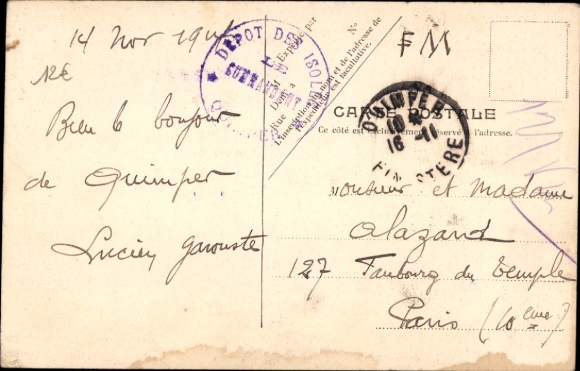 14 Nov 191
12€
Bien le bonjour
de Quimper
Lucien Garouste
DEPOT DES ISOL
LE COMMANDANT
QUIMPER
N°
M
Exposée par
Demt à
Rue
L'inscription du nom et de l'adresse de
l'expéditeur est facultative.
FM
CARTE POSTALE
Ce côté est exclusivement réservé à l'adresse.
QUIMPER
10
16 -11
FINISTERE
Monsieur et Madame
Alazard
127 Faubourg du Temple
Paris (10eme)